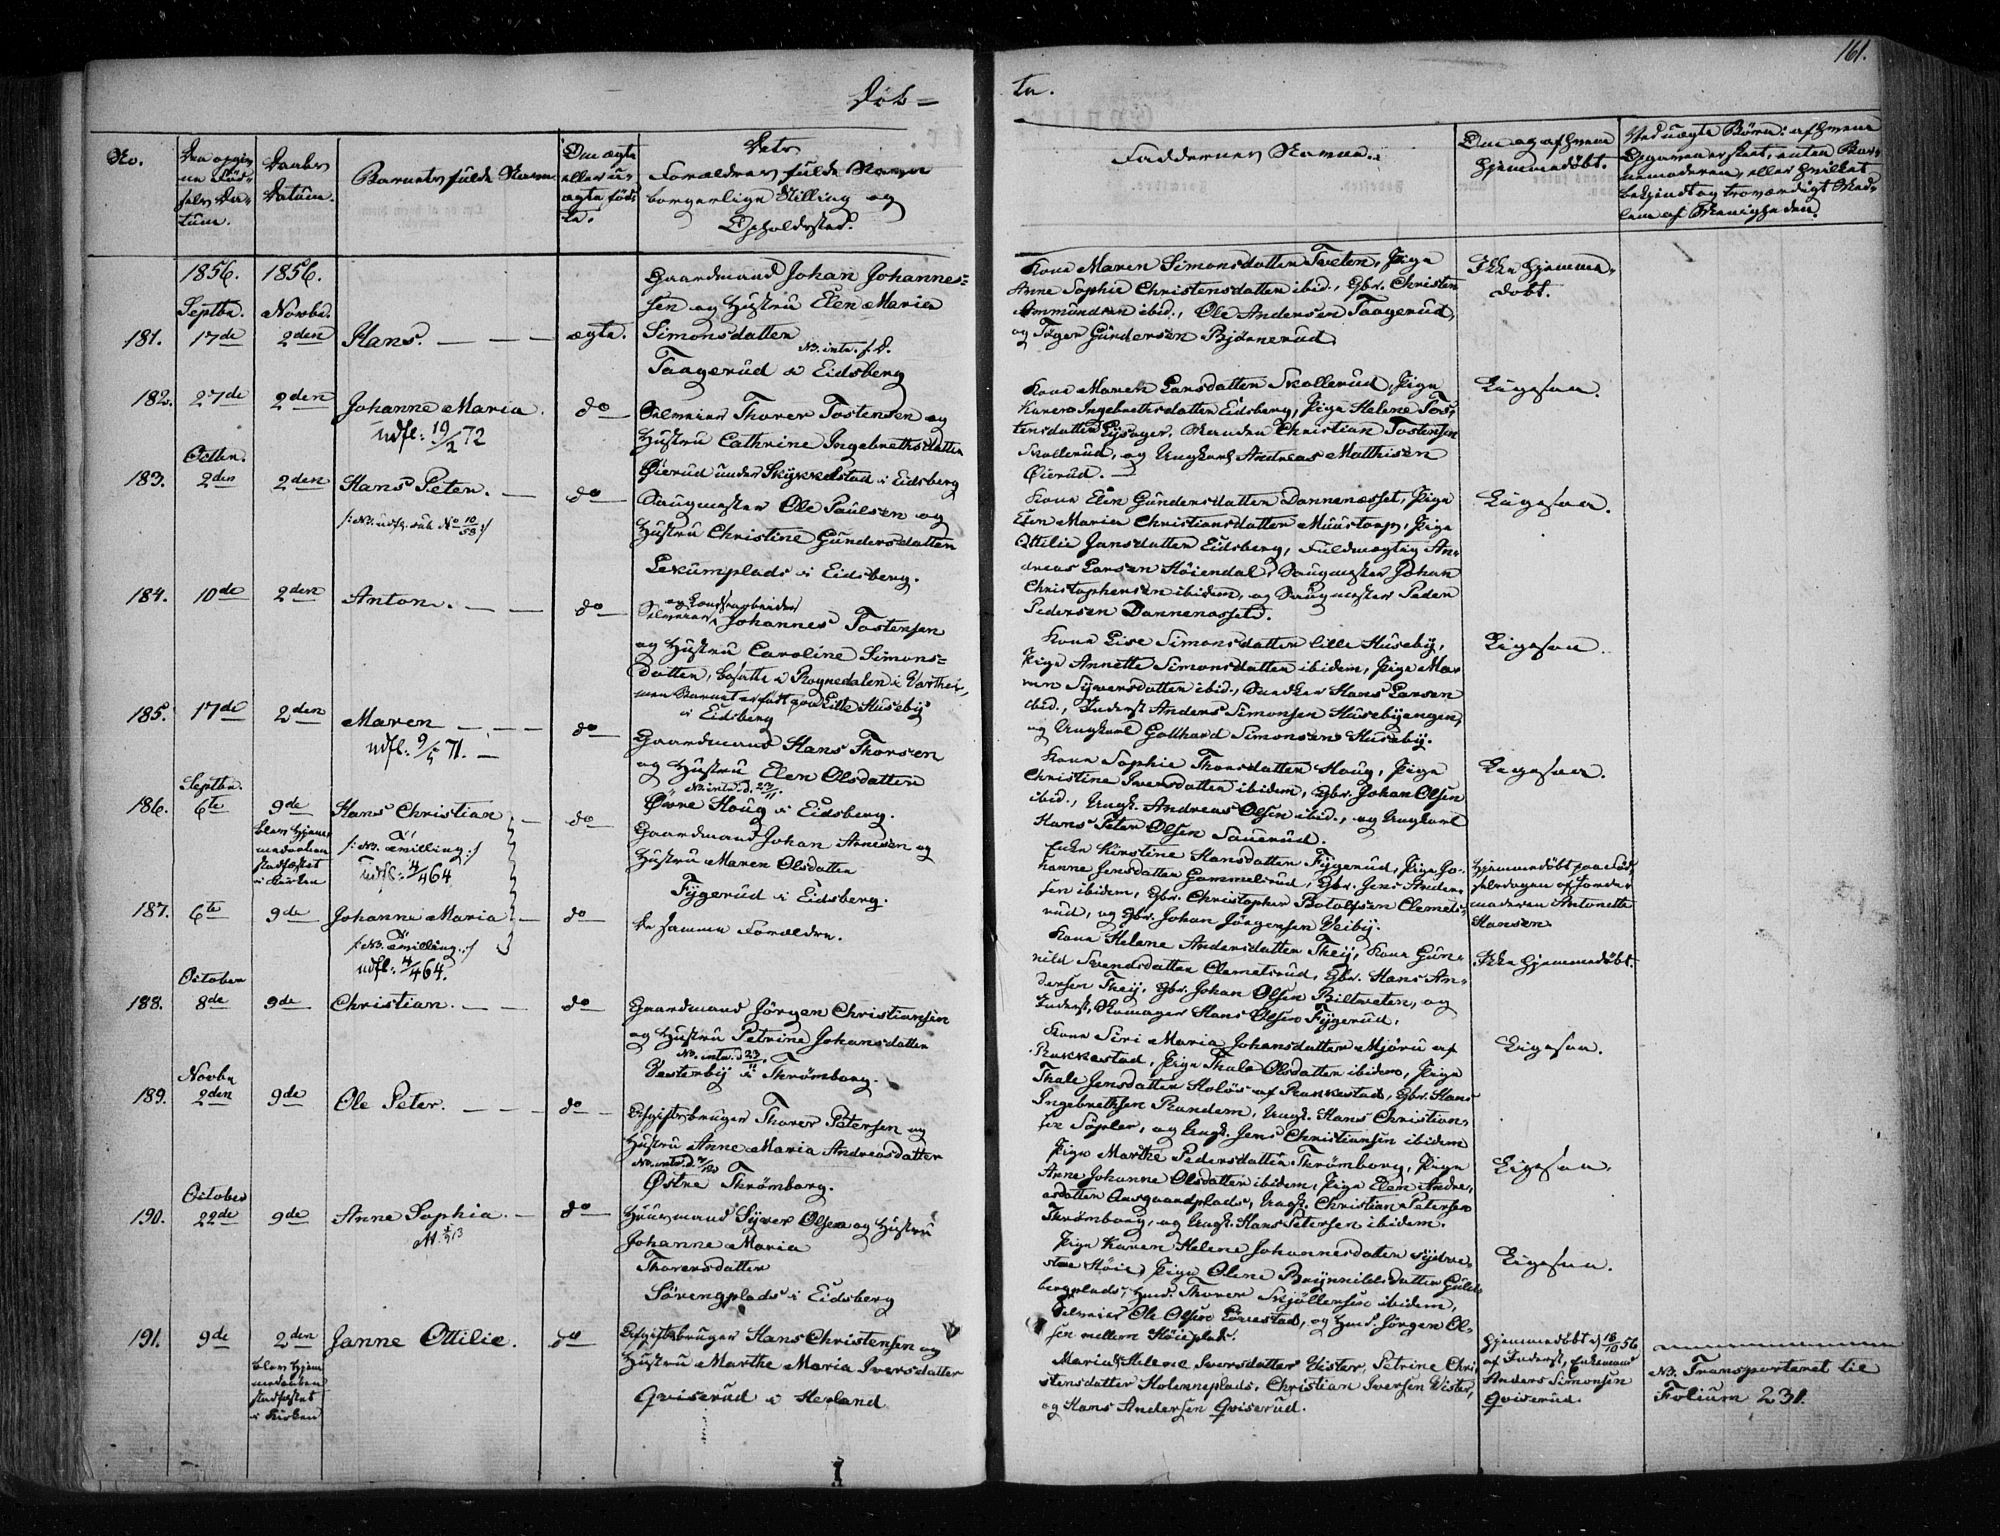 161.
Døb=
te.
No.
Den opgiv-
ne Fød-
sels Da-
tum.
Daabs
Datum.
Barnets fulde Navn
Om ægte
eller u-
ægte fød-
te.
Dets
Forældres fulde Navn
borgerlige Stilling og
Opholdssted.
Faddernes Navne.
Om og af hvem
hjemmedøbt.
Ved uægte Børn: af hvem
Opgaven er skeet, enten Bar-
nemoderen, eller hvilket
bekjendt og troværdigt Med-
lem af Menigheden.
1856. 1856.
Septbr. Novbr.
181. 17de 2den Hans. ægte.
Gaardmand Johan Johannes=
sen og Hustru Elen Maria
Simonsdatter
NB. intr. f. D.
Taagerud i Eidsberg
Kone Maren Simonsdatter Tveten, Pige
Anne Sophie Christensdatter ibid., Gbr. Christen
Ammundsen ibid., Ole Andersen Taagerud,
og Tøger Gundersen Bjørnerud
Ikke hjemme-
døbt.
182. 27de 2den Johanne Maria. do
udfl: 19/2 72
Selveier Thorer Tostensen og
Hustru Cathrine Ingebrethsdatter
Øierud under Skykkelstad i Eidsberg
Kone Maren Larsdatter Skollerud, Pige
Karen Ingebrethsdatter Eidsberg, Pige Helene Tos-
tensdatter Lysager, Christian Tostensen
Skollerud, og Ungkarl Andreas Matthisen
Øierud.
Ligesaa.
Octbr.
183. 2den 2den Hans Peter. do
/: NB. udfg. sub No 10/58 :/
Saugmester Ole Paulsen og
Hustru Christine Gundersdatter
Lekumplads i Eidsberg.
Kone Elen Gundersdatter Dannenasset, Pige
Elen Maria Christiansdatter Muustorp, Pige
Ottilie Jansdatter Eidsberg, Fuldmægtig An-
dreas Larsen Høiendal, Saugmester Johan
Christophersen ibidem, og Saugmester Peder
Pedersen Dannenasset.
Ligesaa.
184. 10de 2den Anton. do
og Landarbeider
Selveier Johannes Tostensen
og Hustru Caroline Simons=
datter, bosatte i Rognedalen i Varteig,
men Barnet er født paa Lille Huseby
i Eidsberg
Kone Lise Simonsdatter lille Huseby,
Pige Annette Simonsdatter ibidem, Pige Ma-
ren Syversdatter ibid., Snedker Hans Larsen
ibid., Inderst Anders Simonsen Husebyengen,
og Ungkarl Gotthard Simonsen Huseby.
Ligesaa.
185. 17de 2den Maren do
udfl: 9/5 71.
Gaardmand Hans Thorsen
og Hustru Elen Olsdatter
NB. intr. d. 23/11
Øvre Haug i Eidsberg.
Kone Sophie Thorsdatter Haug, Pige
Christine Iversdatter ibidem, Gbr. Johan Olsen
ibid., Ungk. Andreas Olsen ibid., og Ungkarl
Hans Peter Olsen Sauerud.
Ligesaa.
Septbr.
186. 6te 9de Hans Christian do
blev hjem-
medaaben
stadfæstet
i Kirken
/: NB. Tvilling :/
Udfl: 4/4 64
Gaardmand Johan Arnesen og
Hustru Maren Olsdatter
Fygerud i Eidsberg.
Enke Kirstine Hansdatter Fygerud, Pige Jo-
hanne Jensdatter Gammelsrud, Gbr. Jens Ander-
sen ibidem, Gbr. Christopher Botolfsen Clemets-
rud, og Gbr. Johan Jørgensen Veiby.
Hjemmedøbt paa Fød-
selsdagen af Jorde-
moderen Antonette
Hansen
187. 6te 9de Johanne Maria do
/: NB. Tvilling :/
udfl: 4/4 64.
De samme Forældre.
Kone Helene Andersdatter Theij, Kone Gun-
nild Svendsdatter Clemetsrud, Gbr. Hans An-
dersen Theij, Gbr. Johan Olsen Biltveten, og
Inderst, Skomager Hans Olsen Fygerud.
Ikke hjemmedøbt.
October
188. 8de 9de Christian. do
Gaardmand Jørgen Christiansen
og Hustru Petrine Johansdatter
NB. intr. d. 23/11
Vesterby i Thrømborg.
Kone Siri Maria Johansdatter Mjøru af
Rakkestad, Pige Thale Olsdatter ibidem, Pige
Thale Jensdatter Holøs af Rakkestad, Gbr. Hans
Ingebrethsen Randem, Ungk. Hans Christian-
sen Søpler, og Ungk. Jens Christiansen ibidem
Ligesaa.
Novbr
189. 2den 9de Ole Peter. do
Afgiftsbruger Thorer Petersen og
Hustru Anne Maria Andreasdatter
NB. intr. d. 7/12
Østre Thrømborg.
Pige Marthe Pedersdatter Thrømborg, Pige
Anne Johanne Olsdatter ibidem, Pige Elen Andre-
asdatter Aasgaardplads, Ungk. Christian Petersen
Thrømborg, og Ungk. Hans Petersen ibidem.
Ligesaa.
October
190. 22de 9de Anne Sophia. do
Huusmand Syver Olsen og Hustru
Johanne Maria
Thorersdatter
Sørengplads i Eidsberg
Pige Karen Helene Johannesdatter Sydve-
stre Høie, Pige Olene Brynnildsdatter Guld-
bergplads, Husm. Thorer Skjøllersen ibidem,
Selveier Ole Olsen, og Husm. Jørgen Ol-
sen mellem Høieplads.
Ligesaa.
191. 9de 2den Janne Ottilie. do
blev hjem
medaaben
stadfæstet
i Kirken
Afgiftsbruger Hans Christensen og
Hustru Marthe Maria Iversdatter
Qviserud i Herland
Maria Helene Iversdatter Vister, Petrine Chri-
stensdatter Holenneplads, Christian Iversen Vister,
og Hans Andersen Qviserud.
Hjemmedøbt d 18/10 56
af Inderst, Enkemand
Anders Simonsen
Qviserud.
NB. Transporteret til
Folium 231.